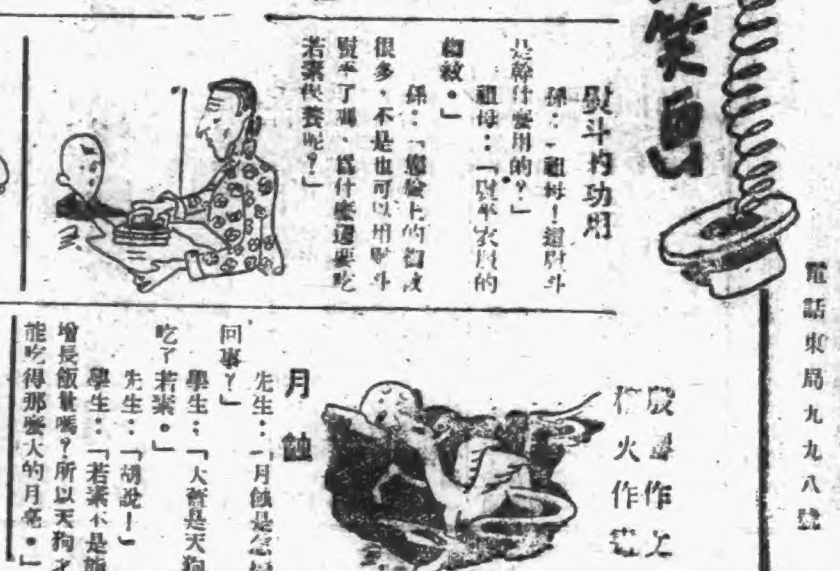 電話東局九九八號
笑
作文
火作
熨斗的功用
孫：「祖母！這熨斗
是幹什麼用的？」
祖母：「熨平衣服的
縐紋。」
孫：「您臉上的縐紋
很多，不是也可以用熨斗
熨平了嗎，爲什麼還要吃
若素保養呢？」
月蝕
先生：「月蝕是怎
回事？」
學生：「大槪是天狗
吃了若素。」
先生：「胡說！」
學生：「若素不是能
增長飯量嗎？所以天狗才
能吃得那麼大的月亮。」